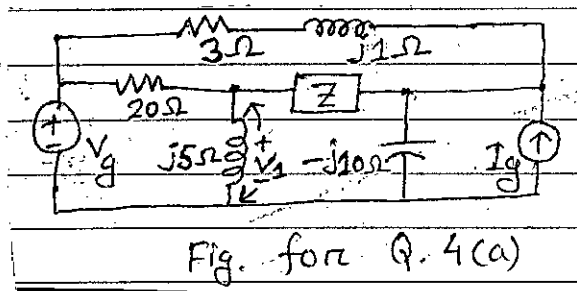 3Ω j1Ω
20Ω Z
+ - Vg j5Ω + V1 - -j10Ω Ig
Fig. for Q. 4(a)